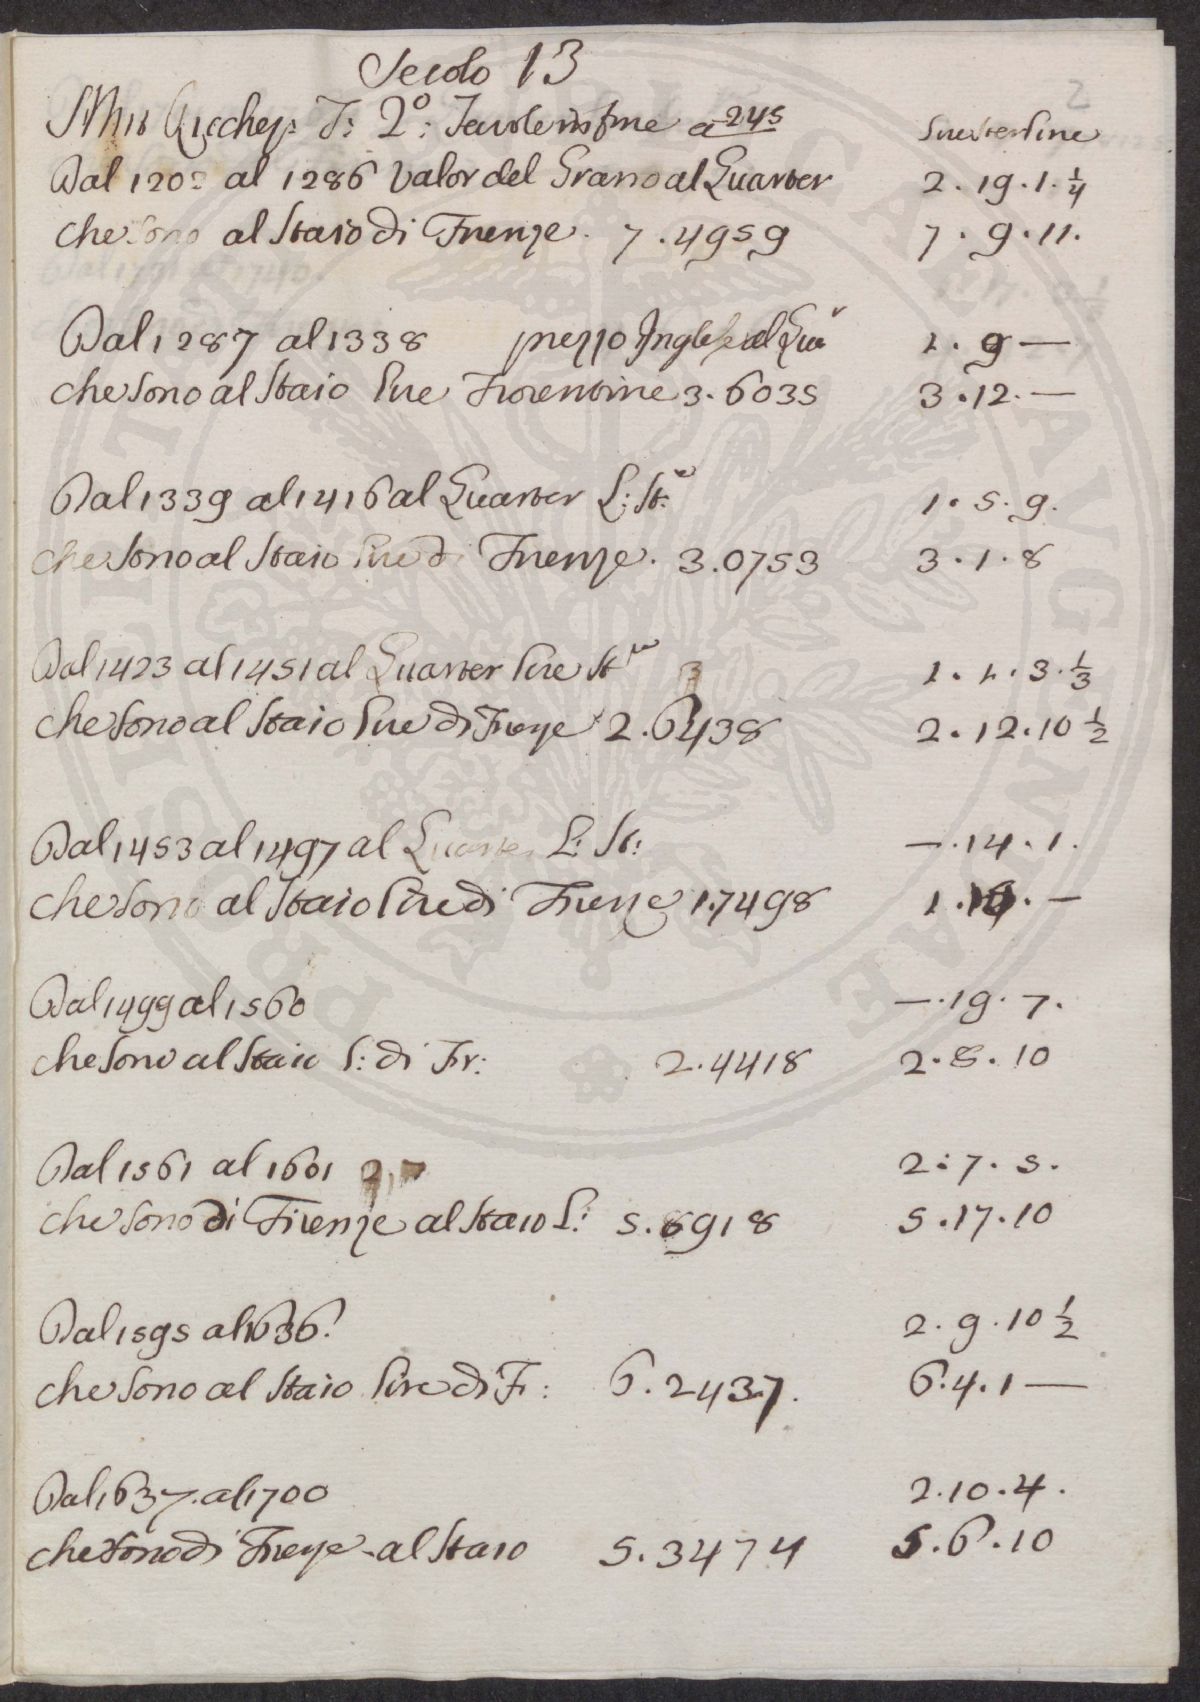 Secolo 13
2
Smit Ricchez: T: 2º: Tavole in fine a 245
Lire sterline
Dal 1202 al 1286 Valor del Grano al Quarter 2. 19. 1. 1/4
che sono al Staio di Firenze. 7.4959 7. 9. 11.
Dal 1287 al 1338 prezzo Inglese al Quar 1. 9 —
che sono al Staio lire Fiorentine 3.6035 3. 12. —
Dal 1339 al 1416 al Quarter L: St: 1. 5. 9.
che sono al Staio lire di Firenze. 3.0753 3. 1. 8
Dal 1423 al 1451 al Quarter lire St 1. 1. 3. 1/3
che sono al Staio lire di Firenze 2.6438 2. 12. 10 1/2
Dal 1453 al 1497 al Quarter L: St: —. 14. 1.
che sono al Staio lire di Firenze 1.7498 1. —
Dal 1499 al 1560 —. 19. 7.
che sono al Staio L: di Fir: 2.4418 2. 8. 10
Dal 1561 al 1601 2: 7. 5.
che sono di Firenze al Staio L: 5.8918 5. 17. 10
Dal 1595 al 1636. 2. 9. 10 1/2
che sono al Staio lire di F: 6.2437. 6. 4. 1 —
Dal 1637. al 1700 2. 10. 4.
che sono di Firenze al Staio 5.3474 5. 6. 10